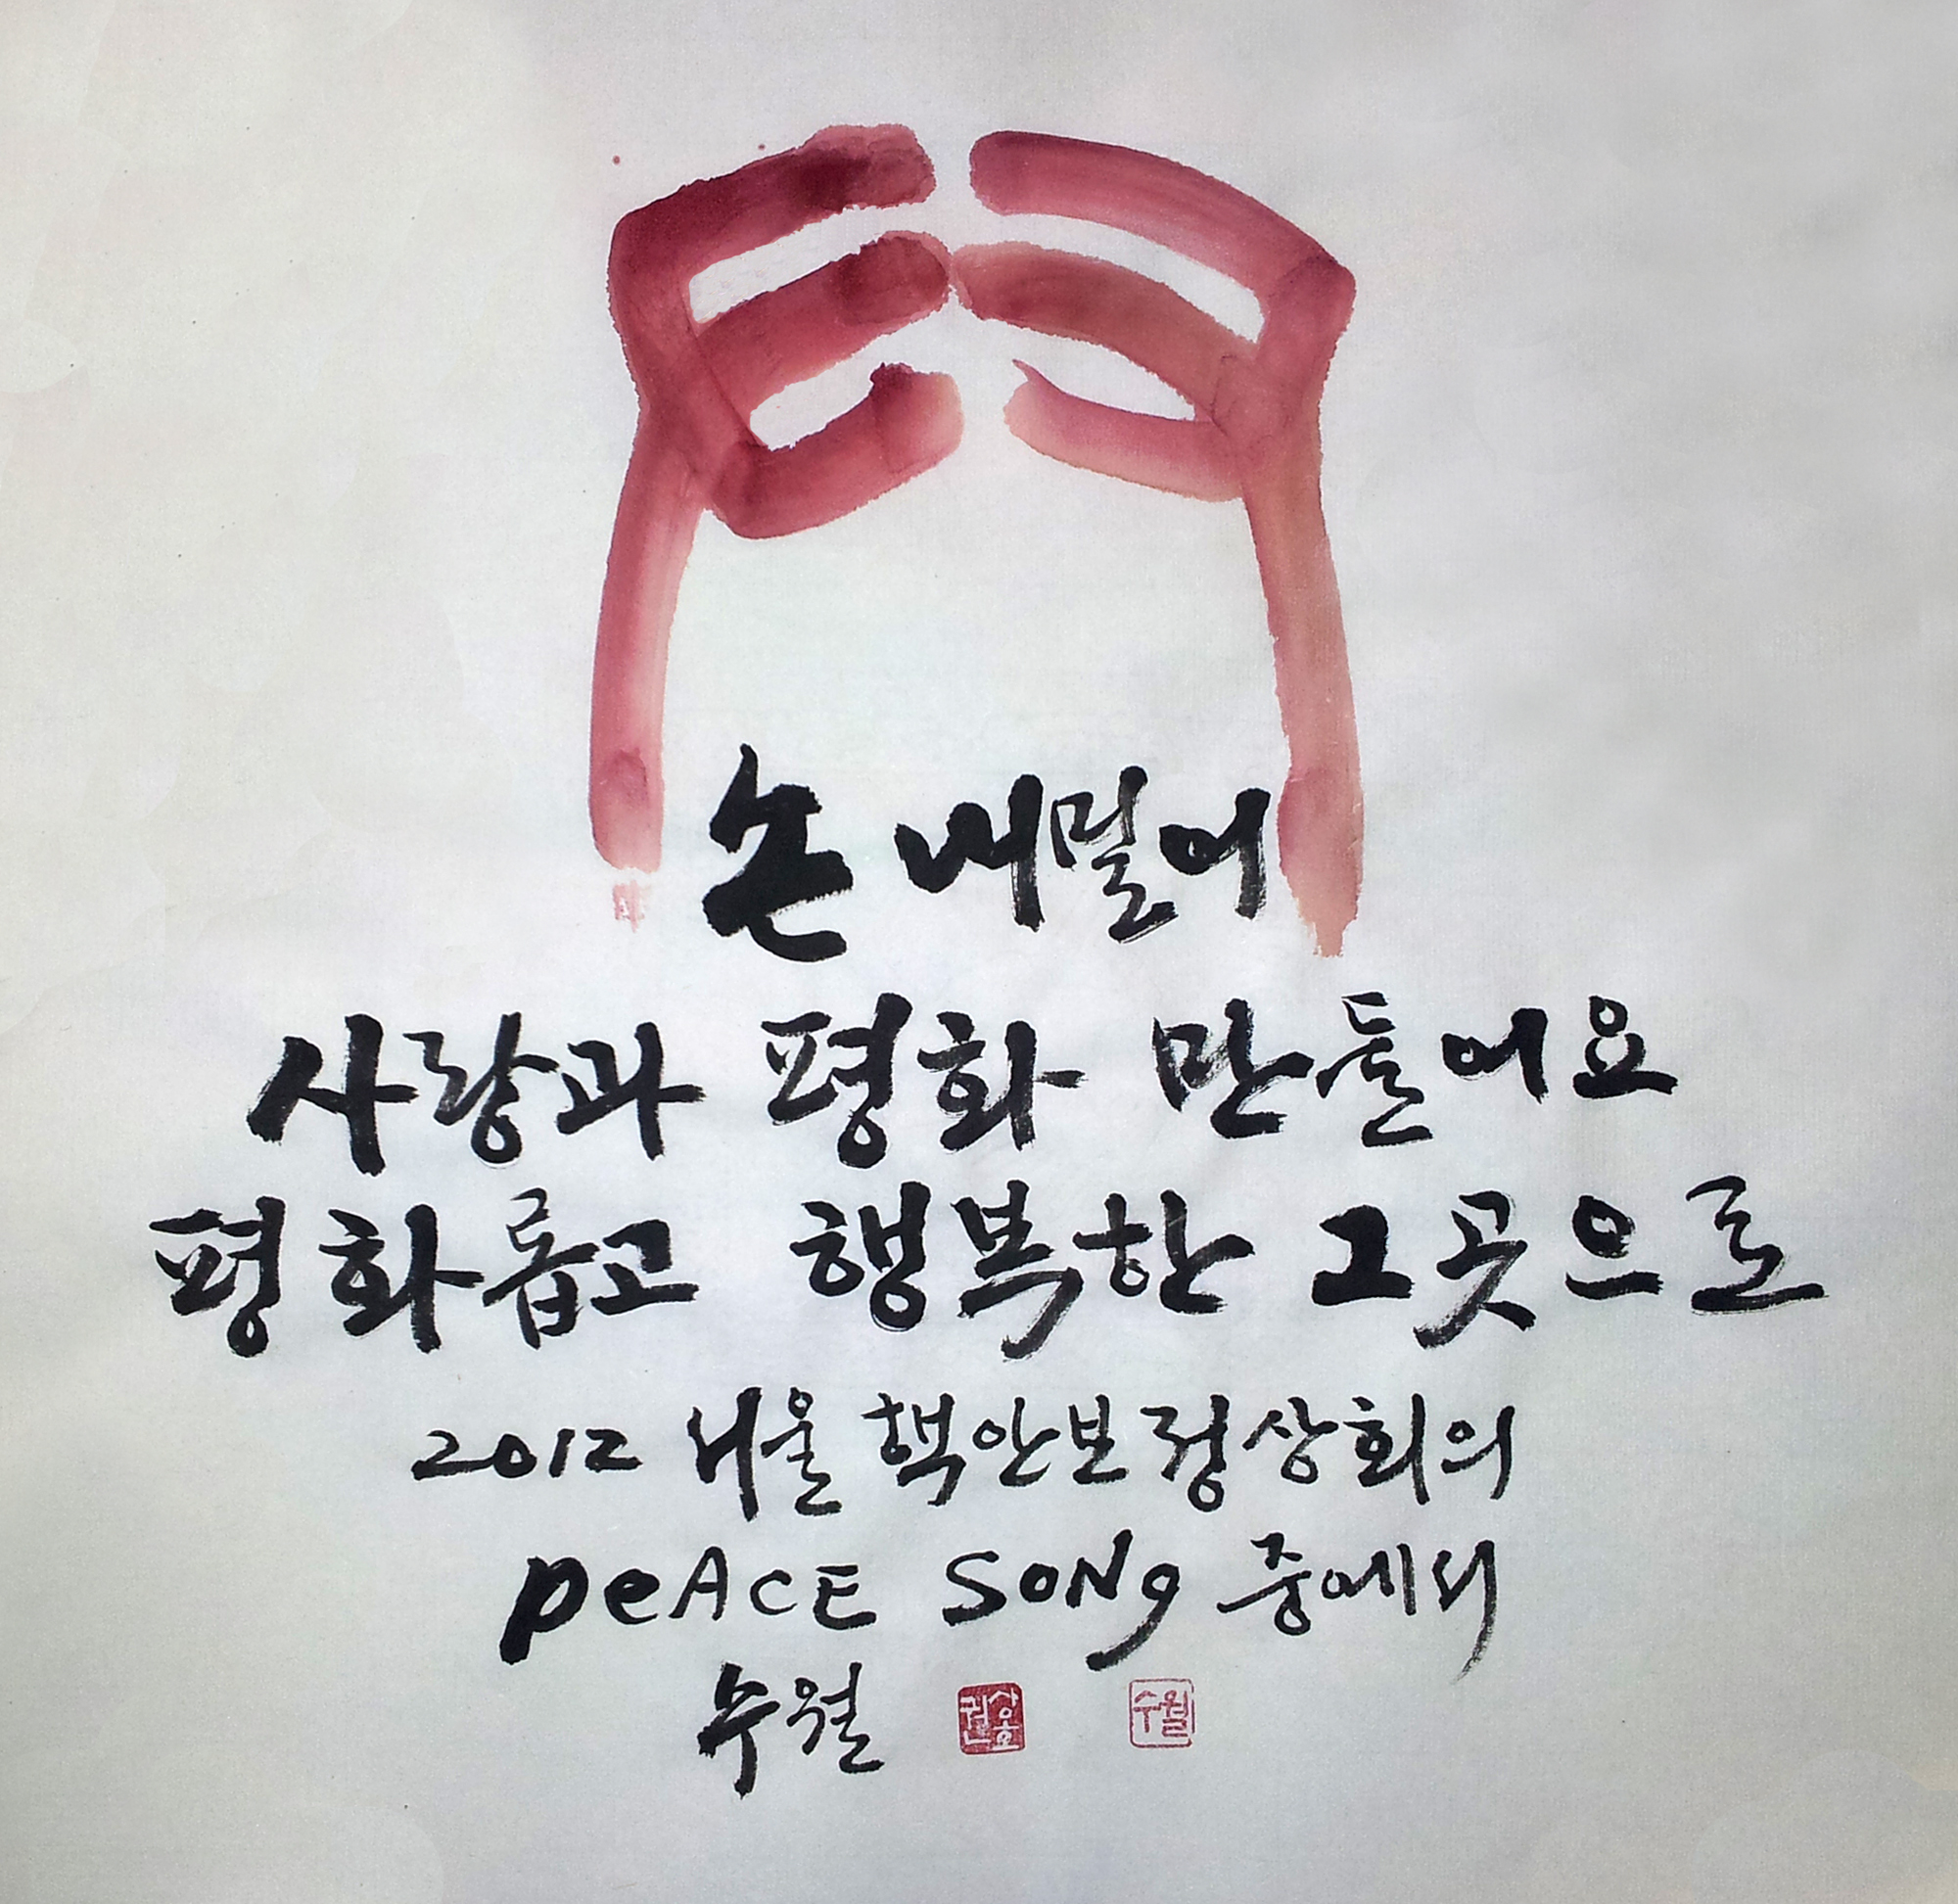 손 내밀어
사랑과 평화 만들어요
평화롭고 행복한 그곳으로
2012 서울 핵안보정상회의
peACE SONg 중에서
수월 권상호 수월